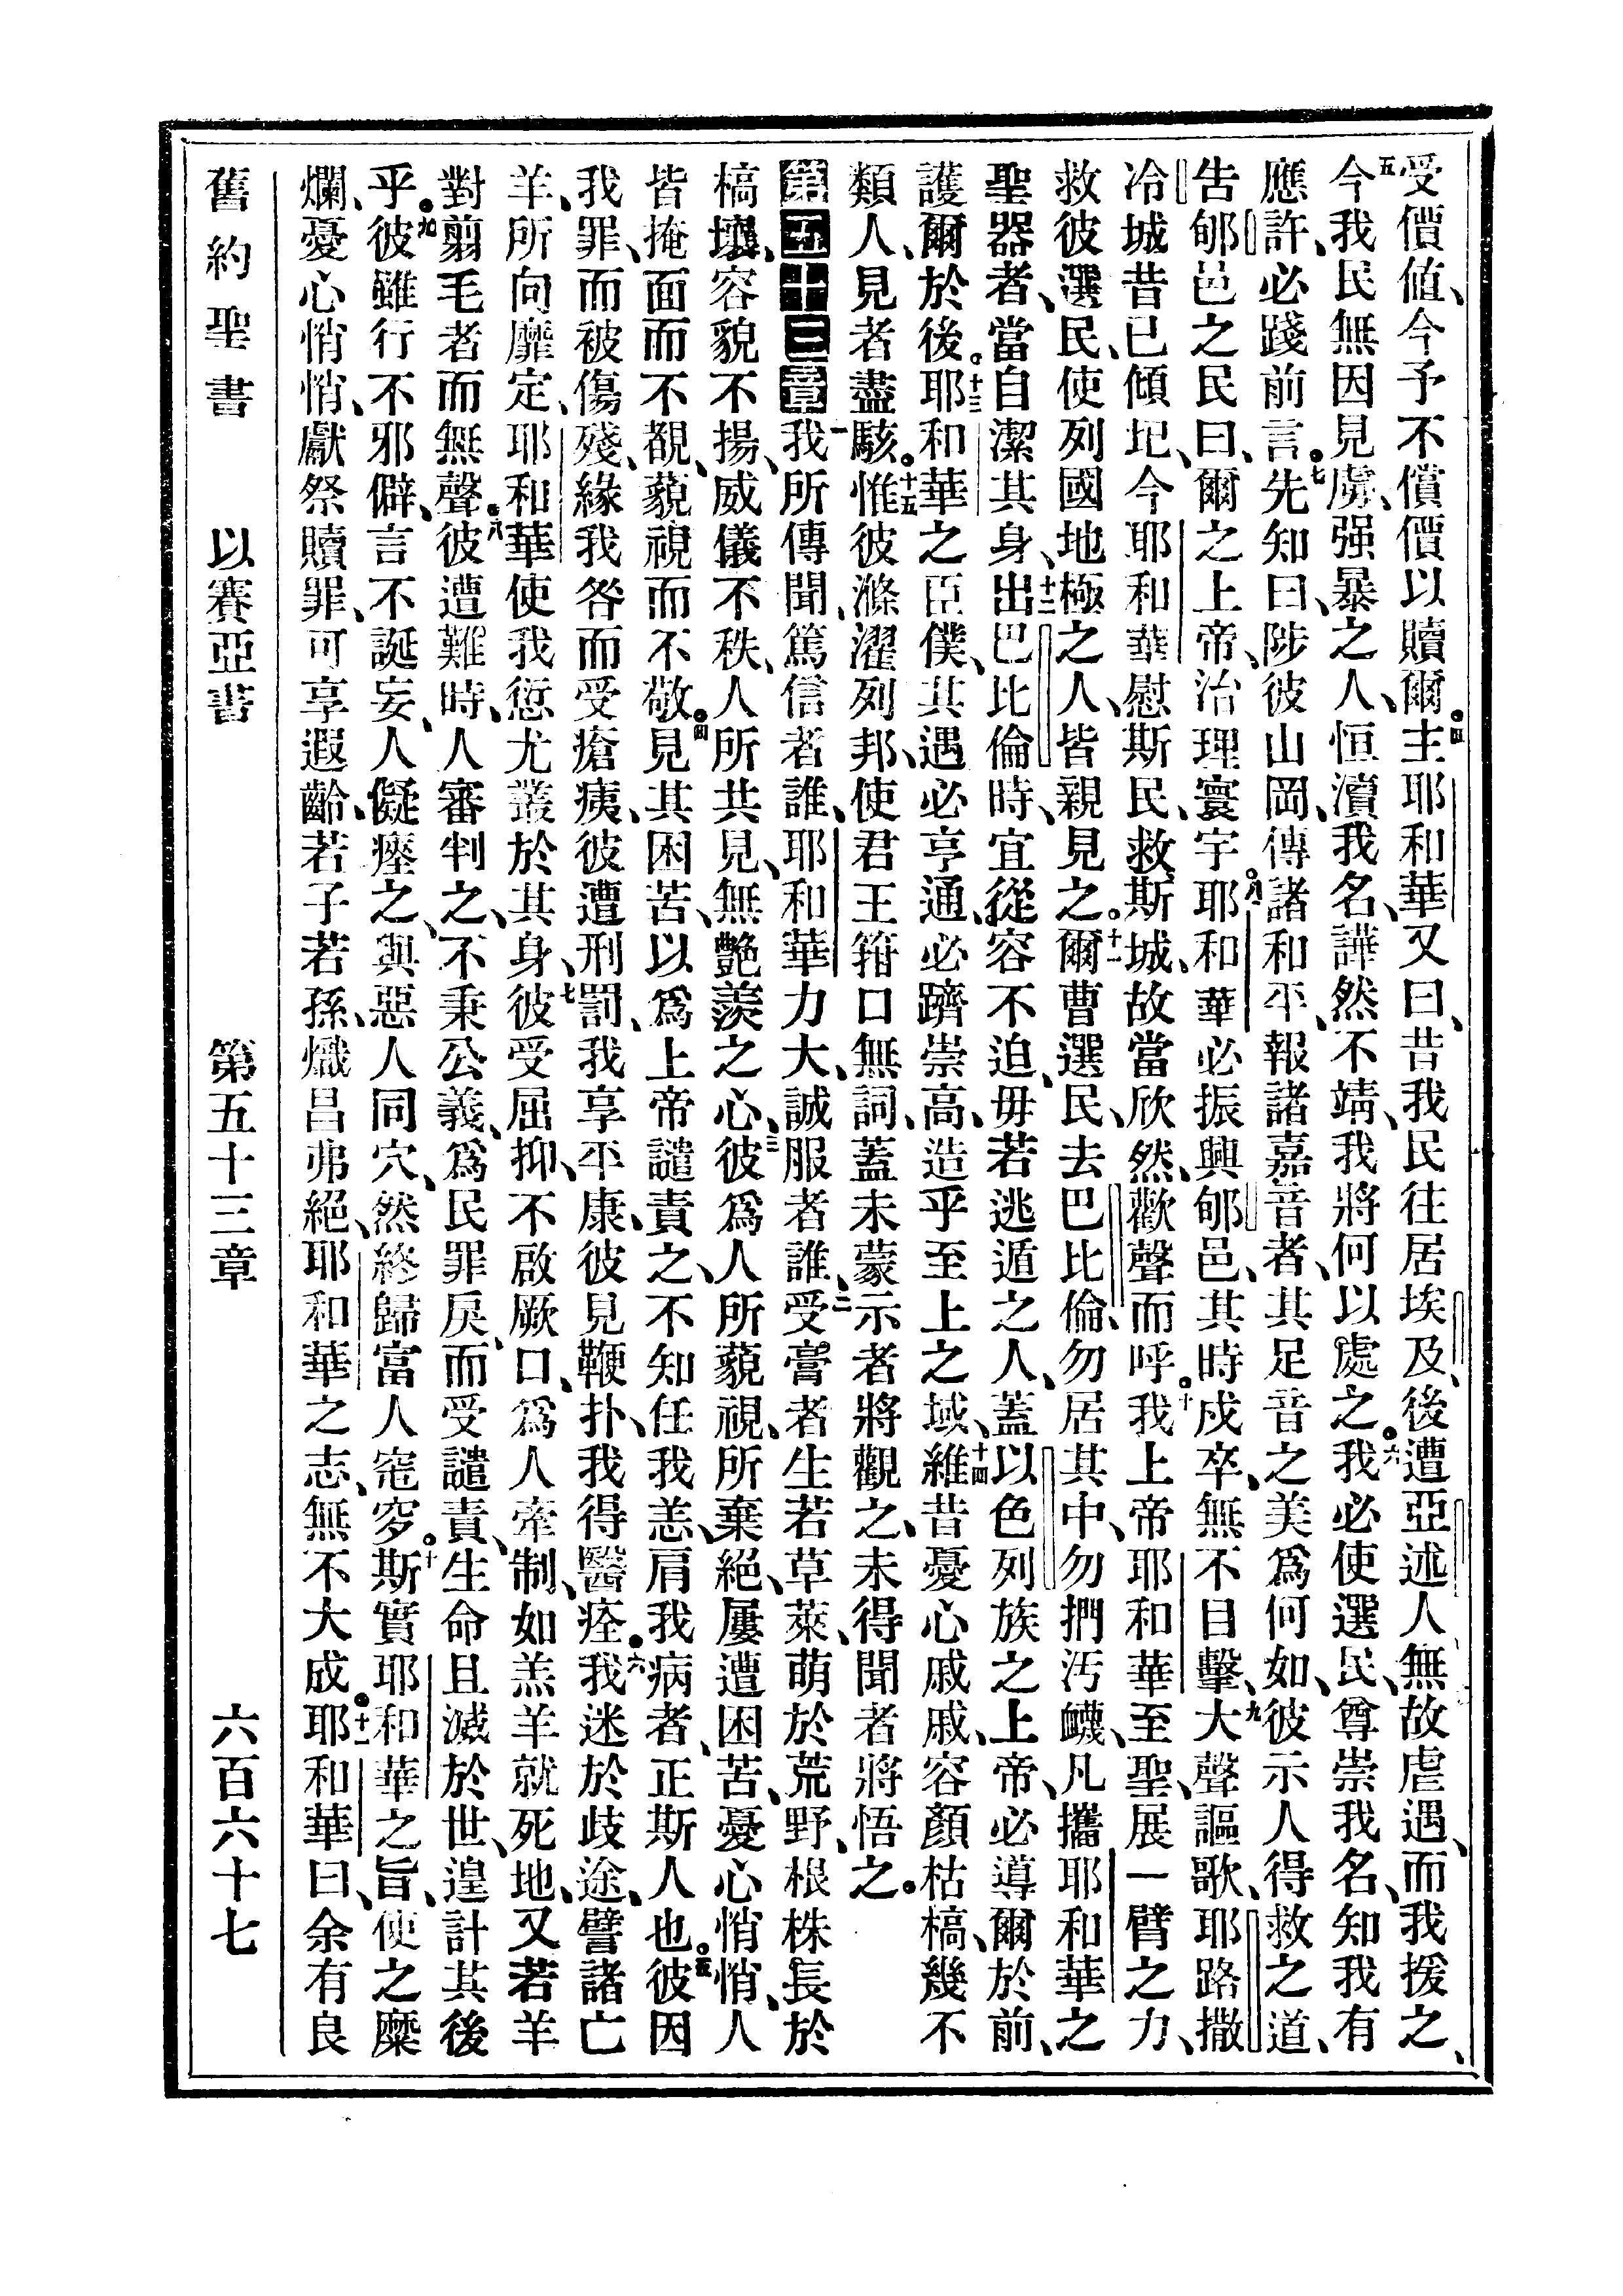 受價値、今予不償價以贖爾。四主耶和華又曰、昔我民往居埃及、後遭亞述人無故虐遇、而我援之、
五今我民無因見虜、强暴之人、恒瀆我名、譁然不靖、我將何以處之。六我必使選民、尊崇我名、知我有
應許、必踐前言。七先知曰、陟彼山岡、傳諸和平、報諸嘉音者、其足音之美爲何如、彼示人得救之道、
告郇邑之民曰、爾之上帝、治理寰宇。八耶和華必振興郇邑、其時戍卒、無不目擊、九大聲謳歌、耶路撒
冷城昔已傾圯、今耶和華慰斯民、救斯城、故當欣然、歡聲而呼。十我上帝耶和華至聖、展一臂之力、
救彼選民、使列國地極之人、皆親見之。十一爾曹選民、去巴比倫、勿居其中、勿捫汚衊、凡攜耶和華之
聖器者、當自潔其身、十二出巴比倫時、宜從容不迫、毋若逃遁之人、蓋以色列族之上帝、必導爾於前、
護爾於後。十三耶和華之臣僕、其遇必亨通、必躋崇高、造乎至上之域、十四維昔憂心戚戚、容顏枯槁、幾不
類人、見者盡駭。十五惟彼滌濯列邦、使君王箝口無詞、蓋未蒙示者將觀之、未得聞者將悟之。
第五十三章一我所傳聞、篤信者誰、耶和華力大、誠服者誰、二受膏者生若草萊、萌於荒野、根株長於
槁壤、容貌不揚、威儀不秩、人所共見、無艷羨之心、三彼爲人所藐視、所棄絕、屢遭困苦、憂心悄悄、人
皆掩面而不覩、藐視而不敬。四見其困苦、以爲上帝譴責之、不知任我恙、肩我病者、正斯人也。五彼因
我罪、而被傷殘、緣我咎而受瘡痍、彼遭刑罰、我享平康、彼見鞭扑、我得醫痊。六我迷於歧途、譬諸亡
羊、所向靡定、耶和華使我愆尤叢於其身、七彼受屈抑、不啟厥口、爲人牽制、如羔羊就死地、又若羊
對翦毛者而無聲。八彼遭難時、人審判之、不秉公義、爲民罪戾、而受譴責、生命且滅於世、遑計其後
乎。九彼雖行不邪僻、言不誕妄、人儗瘞之、與惡人同穴、然終歸富人窀穸。十斯實耶和華之旨、使之糜
爛、憂心悄悄、獻祭贖罪、可享遐齡、若子若孫、熾昌弗絕、耶和華之志、無不大成。十一耶和華曰、余有良
舊約聖書 以賽亞書 第五十三章 六百六十七